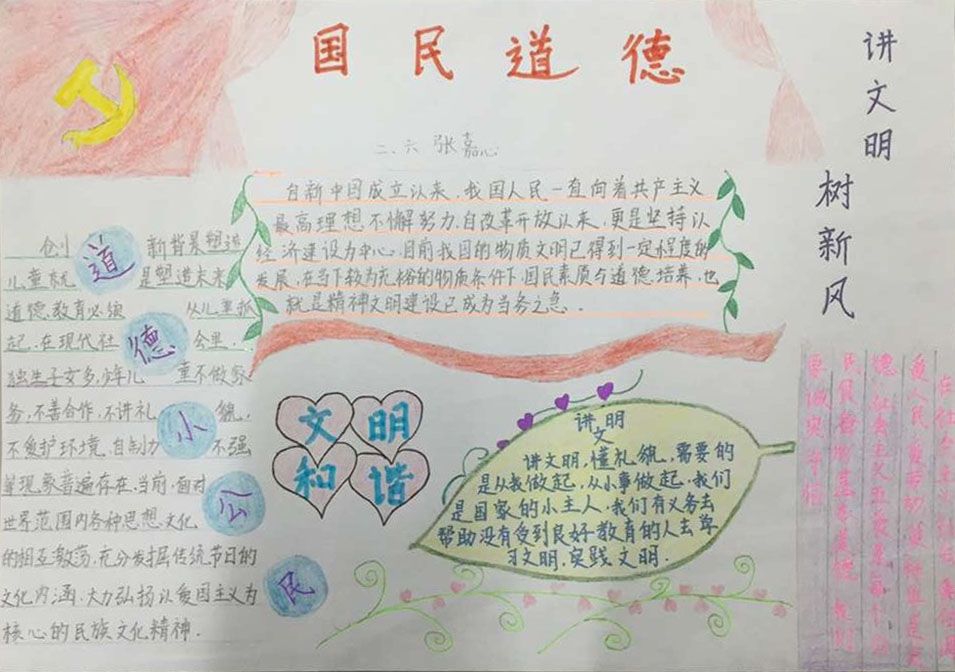 国民道德
二、六 张嘉心
讲文明
树新风
自新中国成立以来，我国人民一直向着共产主义
最高理想不懈努力，自改革开放以来，更是坚持以
经济建设为中心。目前我国的物质文明已得到一定程度的
发展，在当下较为充裕的物质条件下国民素质与道德培养，也
就是精神文明建设已成为当务之急．
道德小公民
新背景塑造
儿童就是塑造未来
道德教育必须从儿童抓
起，在现代社会里，
独生子女多，少年儿童不做家
务，不善合作，不讲礼貌，
不爱护环境，自制力不强
等现象普遍存在，当前，面对
世界范围内各种思想文化
的相互激荡，充分发掘传统节日的
文化内涵，大力弘扬以爱国主义为
核心的民族文化精神．
文明
和谐
讲文明
讲文明，懂礼貌，需要的
是从我做起，从小事做起，我们
是国家的小主人，我们有义务去
帮助没有受到良好教育的人去学
习文明，实践文明．